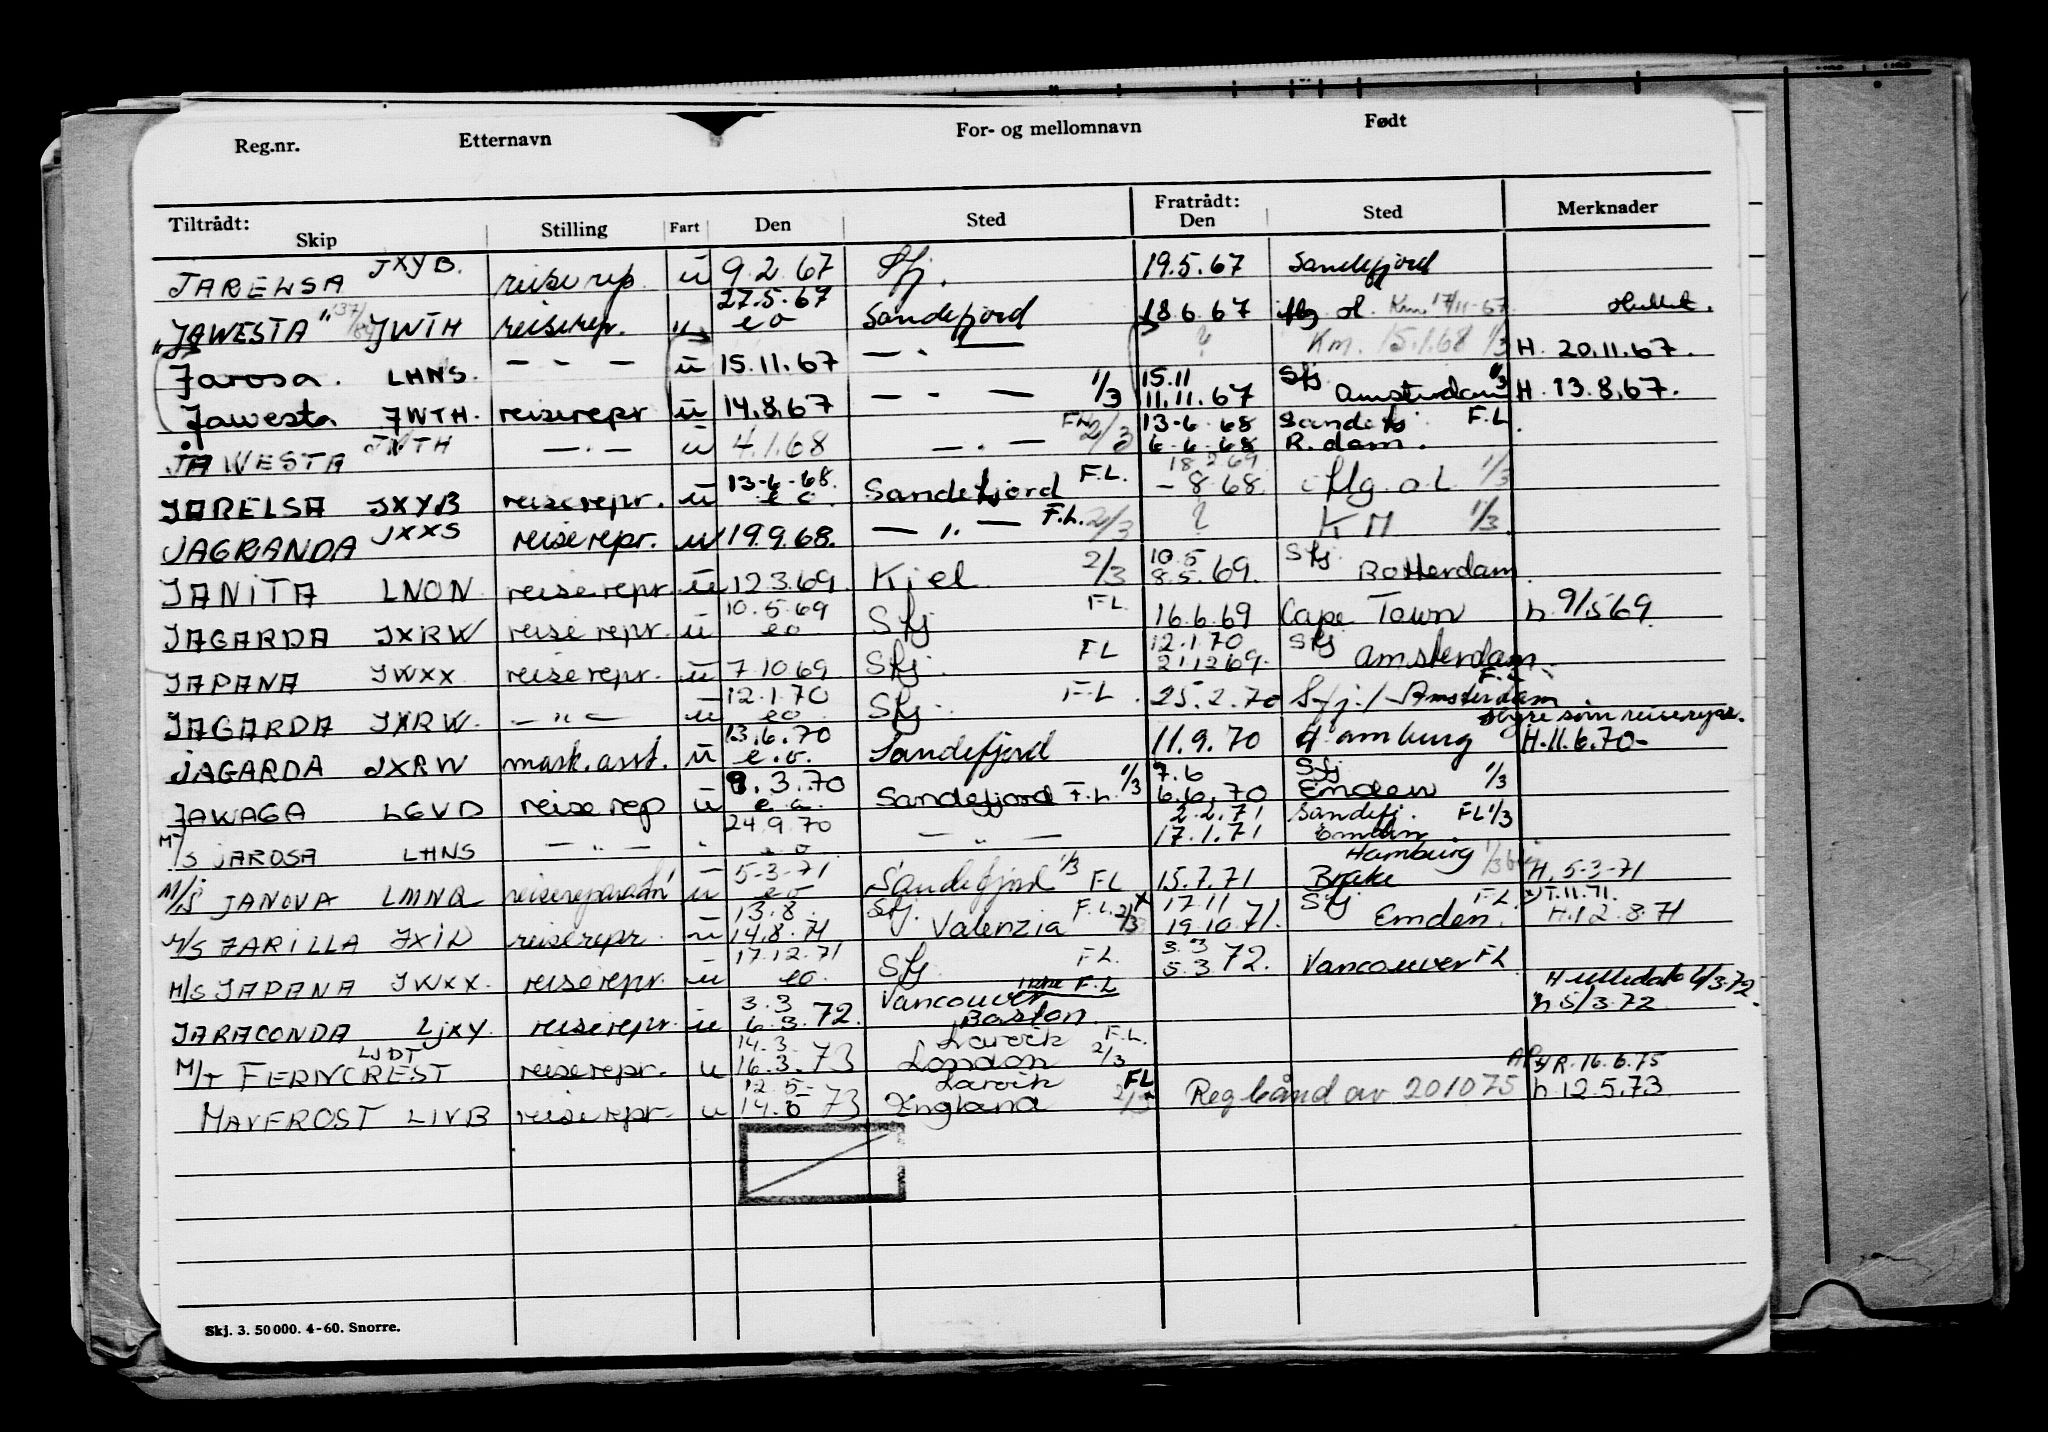 Reg.nr. Etternavn For- og mellomnavn Født
Tiltrådt: Skip Stilling Fart Den Sted Fratrådt: Den Sted Merknader
JARELSA JXYB. reiserep. u 9.2.67 Sfj. 19.5.67 Sandefjord
27.5.67
"JAWESTA" JWTH reiserep. eo Sandefjord 18.6.67 Km. 17/11-67
Jarosa. LHNS. — " — u 15.11.67 — " — ? Km. 15.1.68 1/3 H. 20.11.67.
15.11 Sfj 1/3
Jawesta JWTH. reiserepr u 14.8.67 — " — 1/3 11.11.67 Amsterdam H. 13.8.67.
13-6-68 Sandefj F.L.
JAWESTA JWTH — " — u 4.1.68 — " — 2/3 6-6-68 R.dam.
13-6-68. F.L. 18.2.69
JARELSA JXYB reiserepr. u eo Sandefjord - 8.68. 1/3
JAGRANDA JXXS reiserepr. u 19.9.68. — " — F.L. 2/3 ? KM 1/3
10.5 Sfj.
JANITA LNON reiserepr u 12.3.69. Kiel 2/3 8.5.69. Rotterdam.
10.5.69 FL.
JAGARDA JXRW reiserepr. u eo Sfj 16.6.69 Cape Town h. 9/5 69.
FL 12.1.70 Sfj
JAPANA JWXX reiserepr. u 7.10.69 Sfj. 21.12.69. Amsterdam
12.1.70 F.L
JAGARDA JXRW. — " — u eo Sfj. 25.2.70 Sfj./Amsterdam
13.6.70 Hyre som reiserepr.
JAGARDA JXRW mask.asst. u e.o. Sandefjord 11.9.70 Hamburg H.11.6.70-
9.3.70 1/3 7.6 Sfj 1/3
JAWAGA LGVD reiserep u e.o. Sandefjord F.L. 6.6.70 Emden
24.9.70 2.2.71 Sandefj. FL 1/3
M/S JAROSA LHNS — " — eo — " — 17.1.71 Emden
5-3-71 1/3 Hamburg
M/S JANOVA LMNQ u eo Sandefjord FL 15.7.71 Brake H. 5-3-71
13.8. Sfj. F.L. 2/3 17.11 Sfj F.L. T.11.71.
M/S JARILLA JXID reiserepr. u 14.8.71 Valenzia 19.10.71. Emden. H.12.8.71
17.12.71 FL. 3.3
M/S JAPANA JWXX. reiserepr. u eo Sfj. 5.3 72. Vancouver FL
3.3 Vancouver F.L H 6/3.72
JARACONDA LJXY reiserepr. u 6.3.72. Boston. h 5/3.72.
LJDT 14.3. Larvik F.L.
M/T FERNCREST reiserepr. u 16.3.73 London 2/3 R.16.6.75
12.5- Larvik FL
MAVFROST LIVB reiserepr. u 14.5 73 England Reg bånd av 201075 h.12.5.73.
Skj. 3. 50000. 4-60. Snorre.